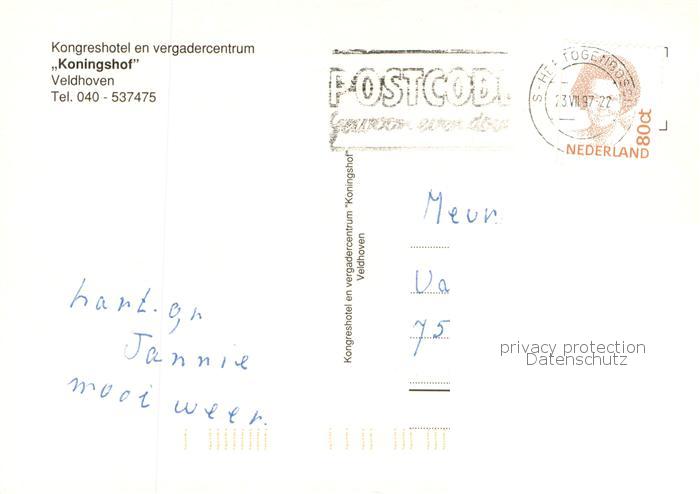 Kongreshotel en vergadercentrum
„Koningshof”
Veldhoven
Tel. 040 - 537475
POSTCODE
gewoon even doen
'S-HERTOGENBOSCH
23 VII 97-22
80ct
NEDERLAND
Kongreshotel en vergadercentrum "Koningshof"
Veldhoven
Mevr.
Va
75
hart. gr
Jannie
mooi weer.
privacy protection
Datenschutz